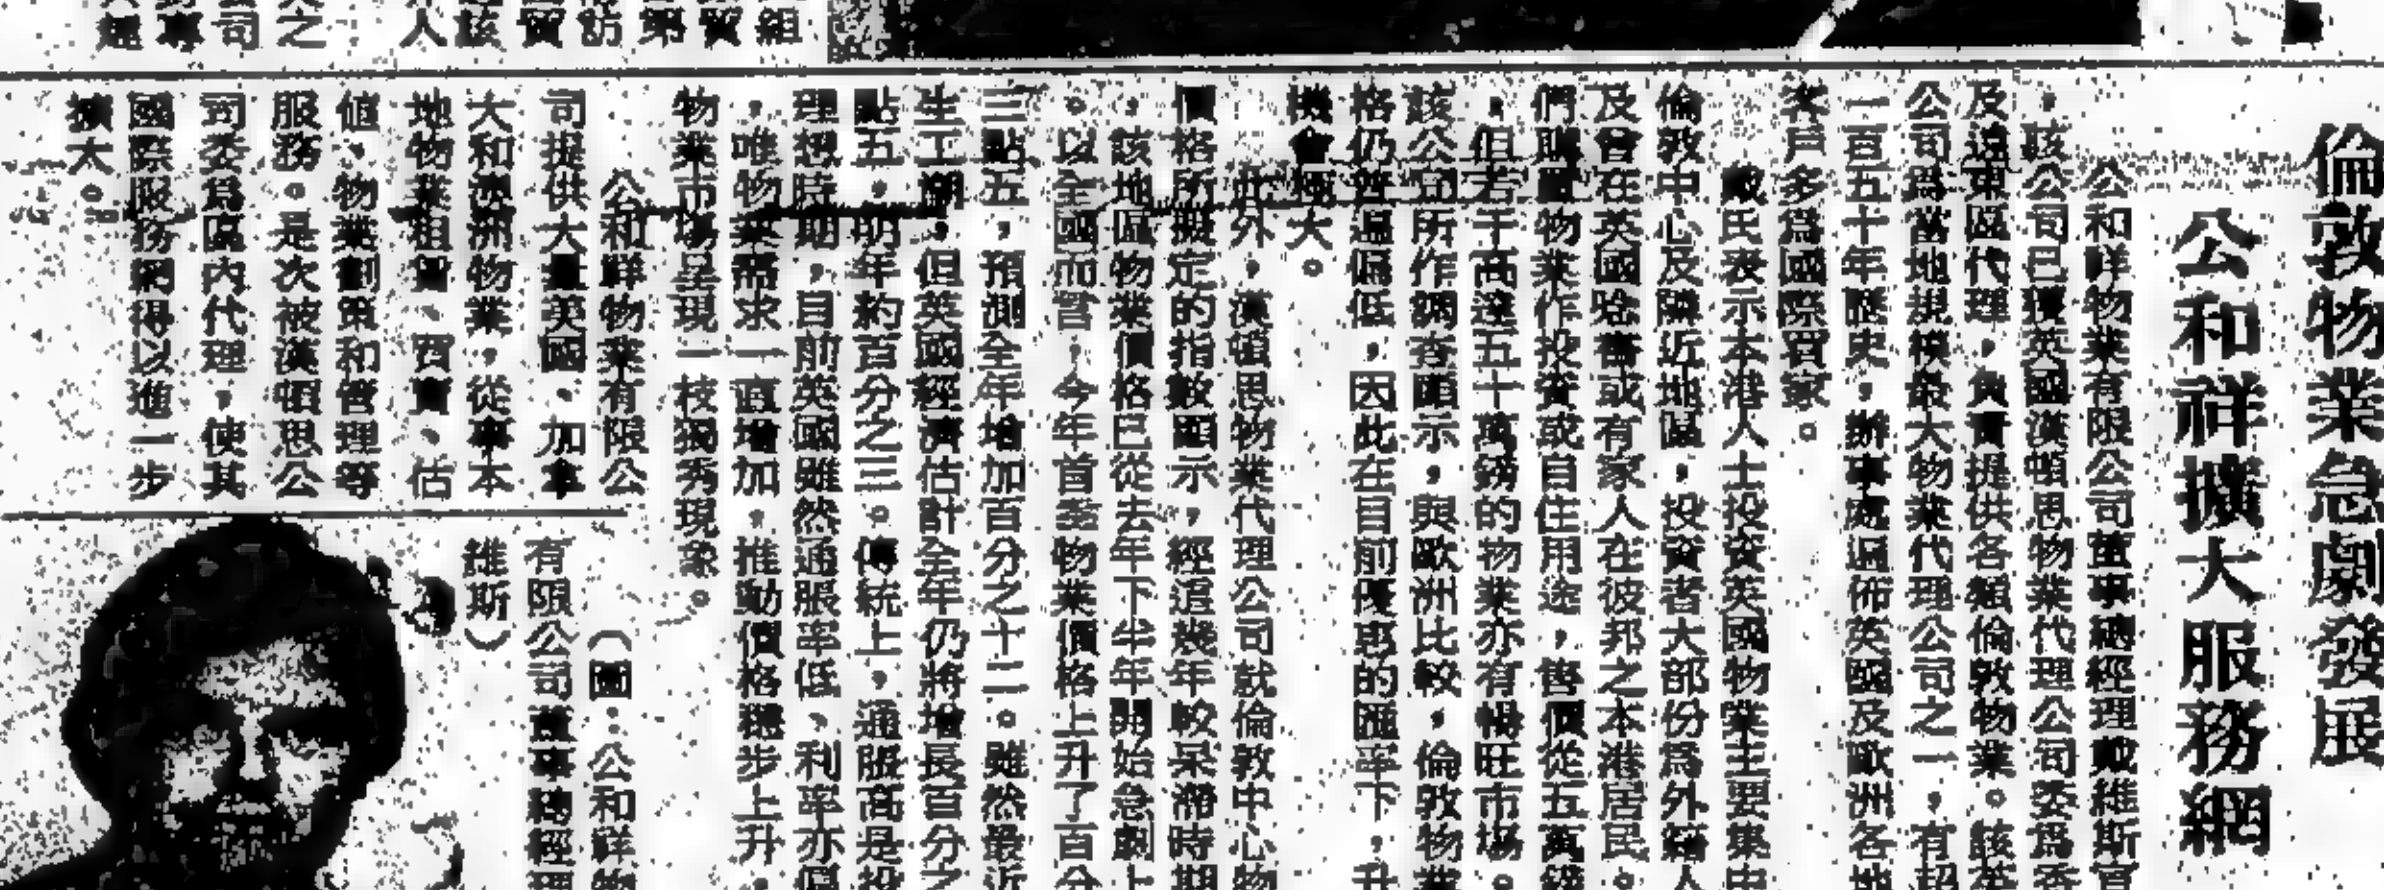 倫敦物業急劇發展
公和祥擴大服務網
公和祥物業有限公司董事總經理戴維斯宣
，該公司已獲英國漢頓思物業代理公司委爲香
及遠東區代理，負責提供各類倫敦物業。該英
公司爲當地規模最大物業代理公司之一，有超
一百五十年歷史，辦事處遍佈英國及歐洲各地
客戶多爲國際買家。
戴氏表示本港人士投資英國物業主要集中
倫敦中心及隣近地區，投資者大部份爲外籍人
及曾在英國唸書或有家人在彼邦之本港居民。
們購置物業作投資或自住用途，售價從五萬鎊
，但若干高達五十萬鎊的物業亦有暢旺市場。
該公司所作調查顯示，與歐洲比較，倫敦物業
格仍普遍偏低，因此在目前優惠的匯率下，升
機會極大。
此外，漢頓思物業代理公司就倫敦中心物
價格所擬定的指數顯示，經過幾年較呆滯時期
，該地區物業價格已從去年下半年開始急劇上
。以全國而言，今年首季物業價格上升了百分
三點五，預測全年增加百分之十二。雖然最近
生工潮，但英國經濟估計全年仍將增長百分之
點五，明年約百分之三。傳統上，通脹高是投
理想時期，目前英國雖然通脹率低、利率亦偏
，唯物業需求一直增加，推動價格穩步上升，
物業市場呈現一枝獨秀現象。
公和祥物業有限公
司提供大量美國、加拿
大和澳洲物業，從事本
地物業租賃、買賣、估
值、物業劃策和管理等
服務。是次被漢頓思公
司委爲區內代理，使其
國際服務網得以進一步
擴大。
（圖：公和祥物
有限公司董事總經理
維斯）